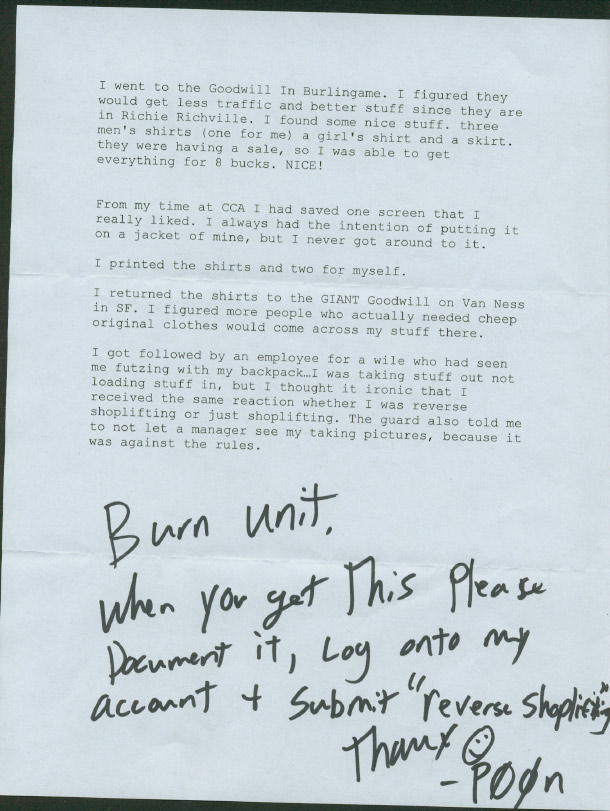 I went to the Goodwill In Burlingame. I figured they
would get less traffic and better stuff since they are
in Richie Richville. I found some nice stuff. three
men's shirts (one for me) a girl's shirt and a skirt.
they were having a sale, so I was able to get
everything for 8 bucks. NICE!
From my time at CCA I had saved one screen that I
really liked. I always had the intention of putting it
on a jacket of mine, but I never got around to it.
I printed the shirts and two for myself.
I returned the shirts to the GIANT Goodwill on Van Ness
in SF. I figured more people who actually needed cheep
original clothes would come across my stuff there.
I got followed by an employee for a wile who had seen
me futzing with my backpack…I was taking stuff out not
loading stuff in, but I thought it ironic that I
received the same reaction whether I was reverse
shoplifting or just shoplifting. The guard also told me
to not let a manager see my taking pictures, because it
was against the rules.
Burn Unit,
When you get This Please
Document it, Log onto my
account + Submit "reverse shoplifting"
Thanx ☺
-PØØn